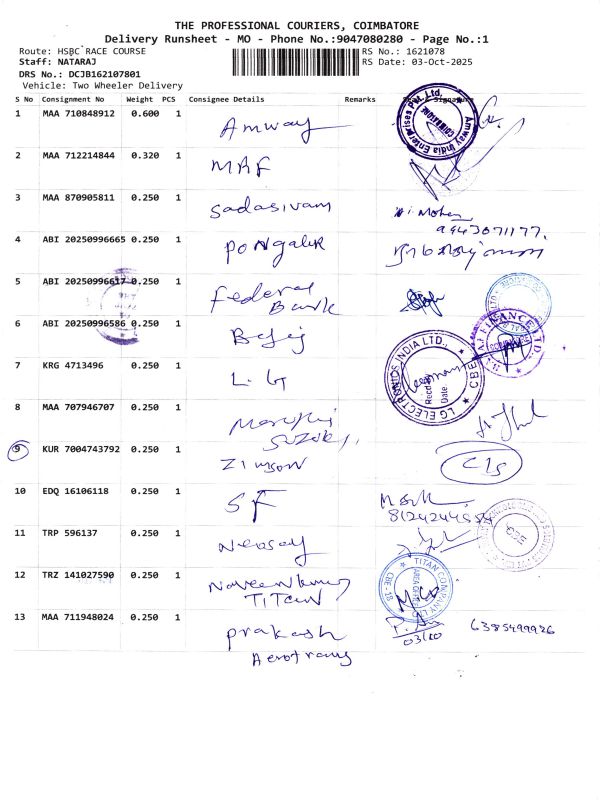 THE PROFESSIONAL COURIERS, COIMBATORE
Delivery Runsheet - MO - Phone No.:9047080280 - Page No.:1
Route: HSBC RACE COURSE
RS No.: 1621078
Staff: NATARAJ
RS Date: 03-Oct-2025
DRS No.: DCJB162107801
Vehicle: Two Wheeler Delivery
S No Consignment No Weight PCS Consignee Details Remarks
1 MAA 710848912 0.600 1 Amway
Amway India Enterprises Pvt. Ltd.
COIMBATORE
2 MAA 712214844 0.320 1 MRF
3 MAA 870905811 0.250 1 Sadasivam
9443071177.
4 ABI 20250996665 0.250 1
5 ABI 20250996617 0.250 1 Federal
Bank
6 ABI 20250996586 0.250 1
7 KRG 4713496 0.250 1 L.G
LG ELECTRONICS INDIA LTD.,
Recd
Date
CBE
8 MAA 707946707 0.250 1 Maruthi
SUZUKI
9 KUR 7004743792 0.250 1 Zimson
C/S
10 EDQ 16106118 0.250 1 SF
11 TRP 596137 0.250 1
12 TRZ 141027590 0.250 1 Naveenkumar
TITAN
TITAN COMPANY
CBE-18
13 MAA 711948024 0.250 1 prakash
03/10
6385499926
Aerotrans